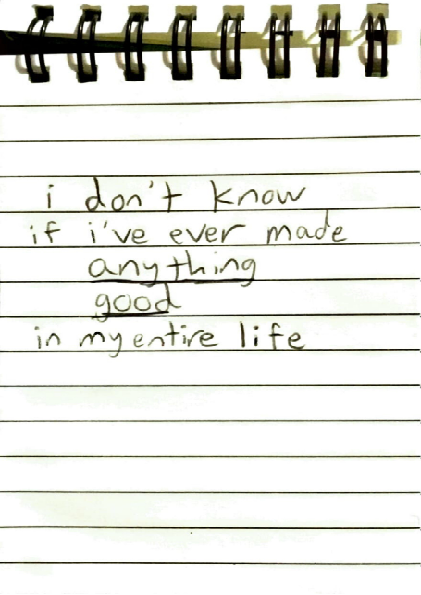 i don't know
if i've ever made
anything
good
in my entire life